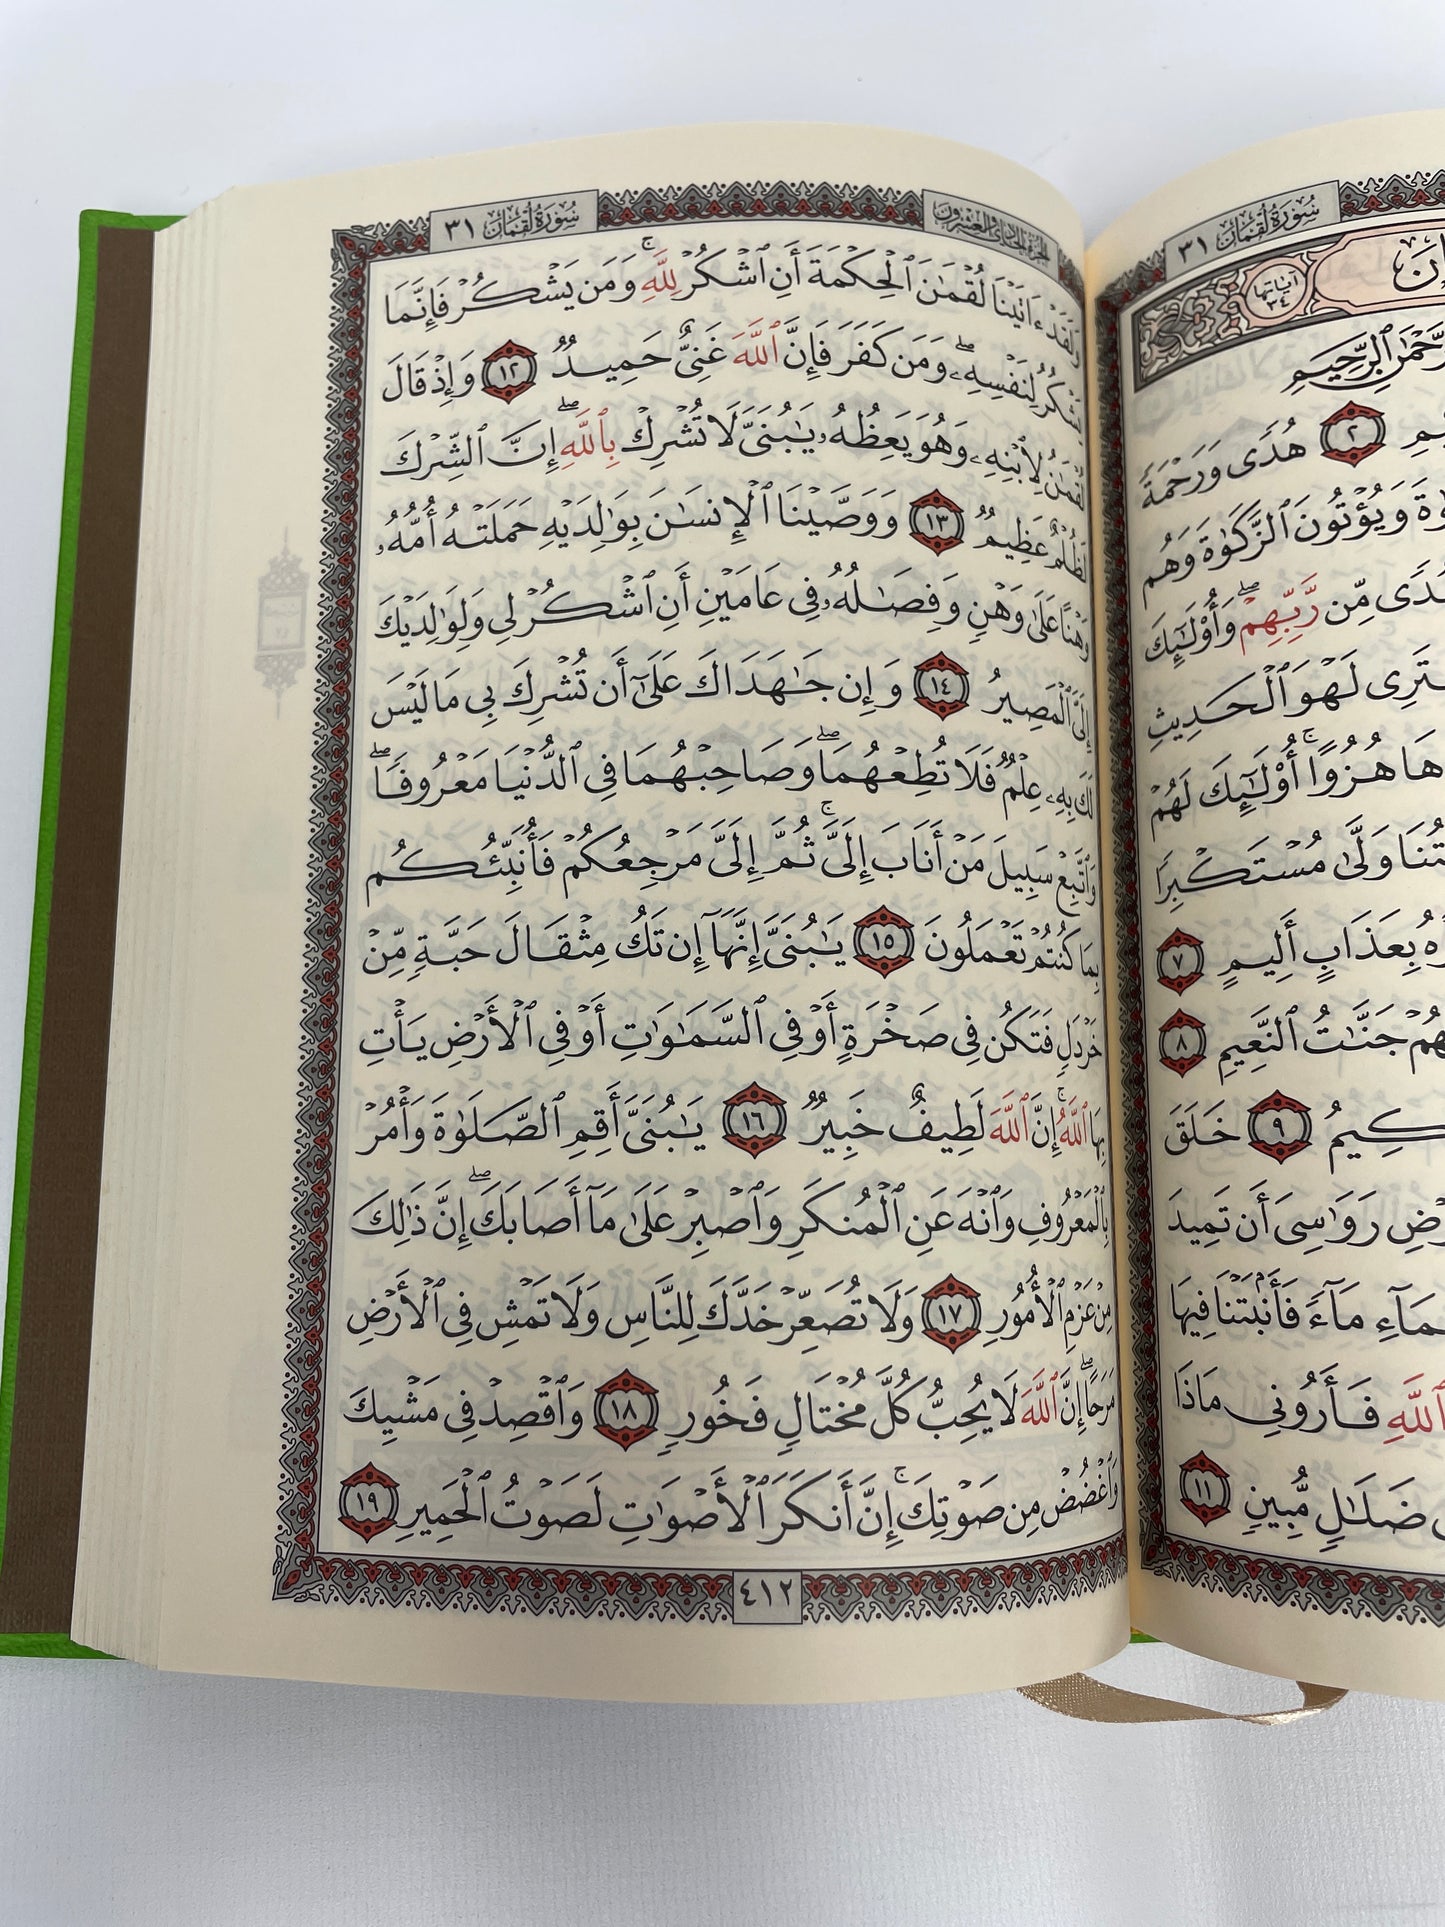 سُورَةُ لُقْمَان ٣١
الجزء الحادي والعشرون
سُورَةُ لُقْمَان ٣١
وَلَقَدْ ءَاتَيْنَا لُقْمَٰنَ ٱلْحِكْمَةَ أَنِ ٱشْكُرْ لِلَّهِ ۚ وَمَن يَشْكُرْ فَإِنَّمَا
يَشْكُرُ لِنَفْسِهِۦ ۖ وَمَن كَفَرَ فَإِنَّ ٱللَّهَ غَنِىٌّ حَمِيدٌ ١٢ وَإِذْ قَالَ
لُقْمَٰنُ لِٱبْنِهِۦ وَهُوَ يَعِظُهُۥ يَٰبُنَىَّ لَا تُشْرِكْ بِٱللَّهِ ۖ إِنَّ ٱلشِّرْكَ
لَظُلْمٌ عَظِيمٌ ١٣ وَوَصَّيْنَا ٱلْإِنسَٰنَ بِوَٰلِدَيْهِ حَمَلَتْهُ أُمُّهُۥ
وَهْنًا عَلَىٰ وَهْنٍ وَفِصَٰلُهُۥ فِى عَامَيْنِ أَنِ ٱشْكُرْ لِى وَلِوَٰلِدَيْكَ
إِلَىَّ ٱلْمَصِيرُ ١٤ وَإِن جَٰهَدَاكَ عَلَىٰٓ أَن تُشْرِكَ بِى مَا لَيْسَ
لَكَ بِهِۦ عِلْمٌ فَلَا تُطِعْهُمَا ۖ وَصَاحِبْهُمَا فِى ٱلدُّنْيَا مَعْرُوفًا ۖ
وَٱتَّبِعْ سَبِيلَ مَنْ أَنَابَ إِلَىَّ ۚ ثُمَّ إِلَىَّ مَرْجِعُكُمْ فَأُنَبِّئُكُم
بِمَا كُنتُمْ تَعْمَلُونَ ١٥ يَٰبُنَىَّ إِنَّهَآ إِن تَكُ مِثْقَالَ حَبَّةٍ مِّنْ
خَرْدَلٍ فَتَكُن فِى صَخْرَةٍ أَوْ فِى ٱلسَّمَٰوَٰتِ أَوْ فِى ٱلْأَرْضِ يَأْتِ
بِهَا ٱللَّهُ ۚ إِنَّ ٱللَّهَ لَطِيفٌ خَبِيرٌ ١٦ يَٰبُنَىَّ أَقِمِ ٱلصَّلَوٰةَ وَأْمُرْ
بِٱلْمَعْرُوفِ وَٱنْهَ عَنِ ٱلْمُنكَرِ وَٱصْبِرْ عَلَىٰ مَآ أَصَابَكَ ۖ إِنَّ ذَٰلِكَ
مِنْ عَزْمِ ٱلْأُمُورِ ١٧ وَلَا تُصَعِّرْ خَدَّكَ لِلنَّاسِ وَلَا تَمْشِ فِى ٱلْأَرْضِ
مَرَحًا ۖ إِنَّ ٱللَّهَ لَا يُحِبُّ كُلَّ مُخْتَالٍ فَخُورٍ ١٨ وَٱقْصِدْ فِى مَشْيِكَ
وَٱغْضُضْ مِن صَوْتِكَ ۚ إِنَّ أَنكَرَ ٱلْأَصْوَٰتِ لَصَوْتُ ٱلْحَمِيرِ ١٩
٤١٢
آياتها
٣٤
ٱلرَّحِيمِ
٢ هُدًى وَرَحْمَةً
وَيُؤْتُونَ ٱلزَّكَوٰةَ وَهُم
مِّن رَّبِّهِمْ ۖ وَأُو۟لَٰٓئِكَ
لَهْوَ ٱلْحَدِيثِ
هُزُوًا ۚ أُو۟لَٰٓئِكَ لَهُمْ
وَلَّىٰ مُسْتَكْبِرًا
بِعَذَابٍ أَلِيمٍ ٧
جَنَّٰتُ ٱلنَّعِيمِ ٨
٩ خَلَقَ
رَوَٰسِىَ أَن تَمِيدَ
مَآءً فَأَنۢبَتْنَا فِيهَا
ٱللَّهِ فَأَرُونِى مَاذَا
ضَلَٰلٍ مُّبِينٍ ١١